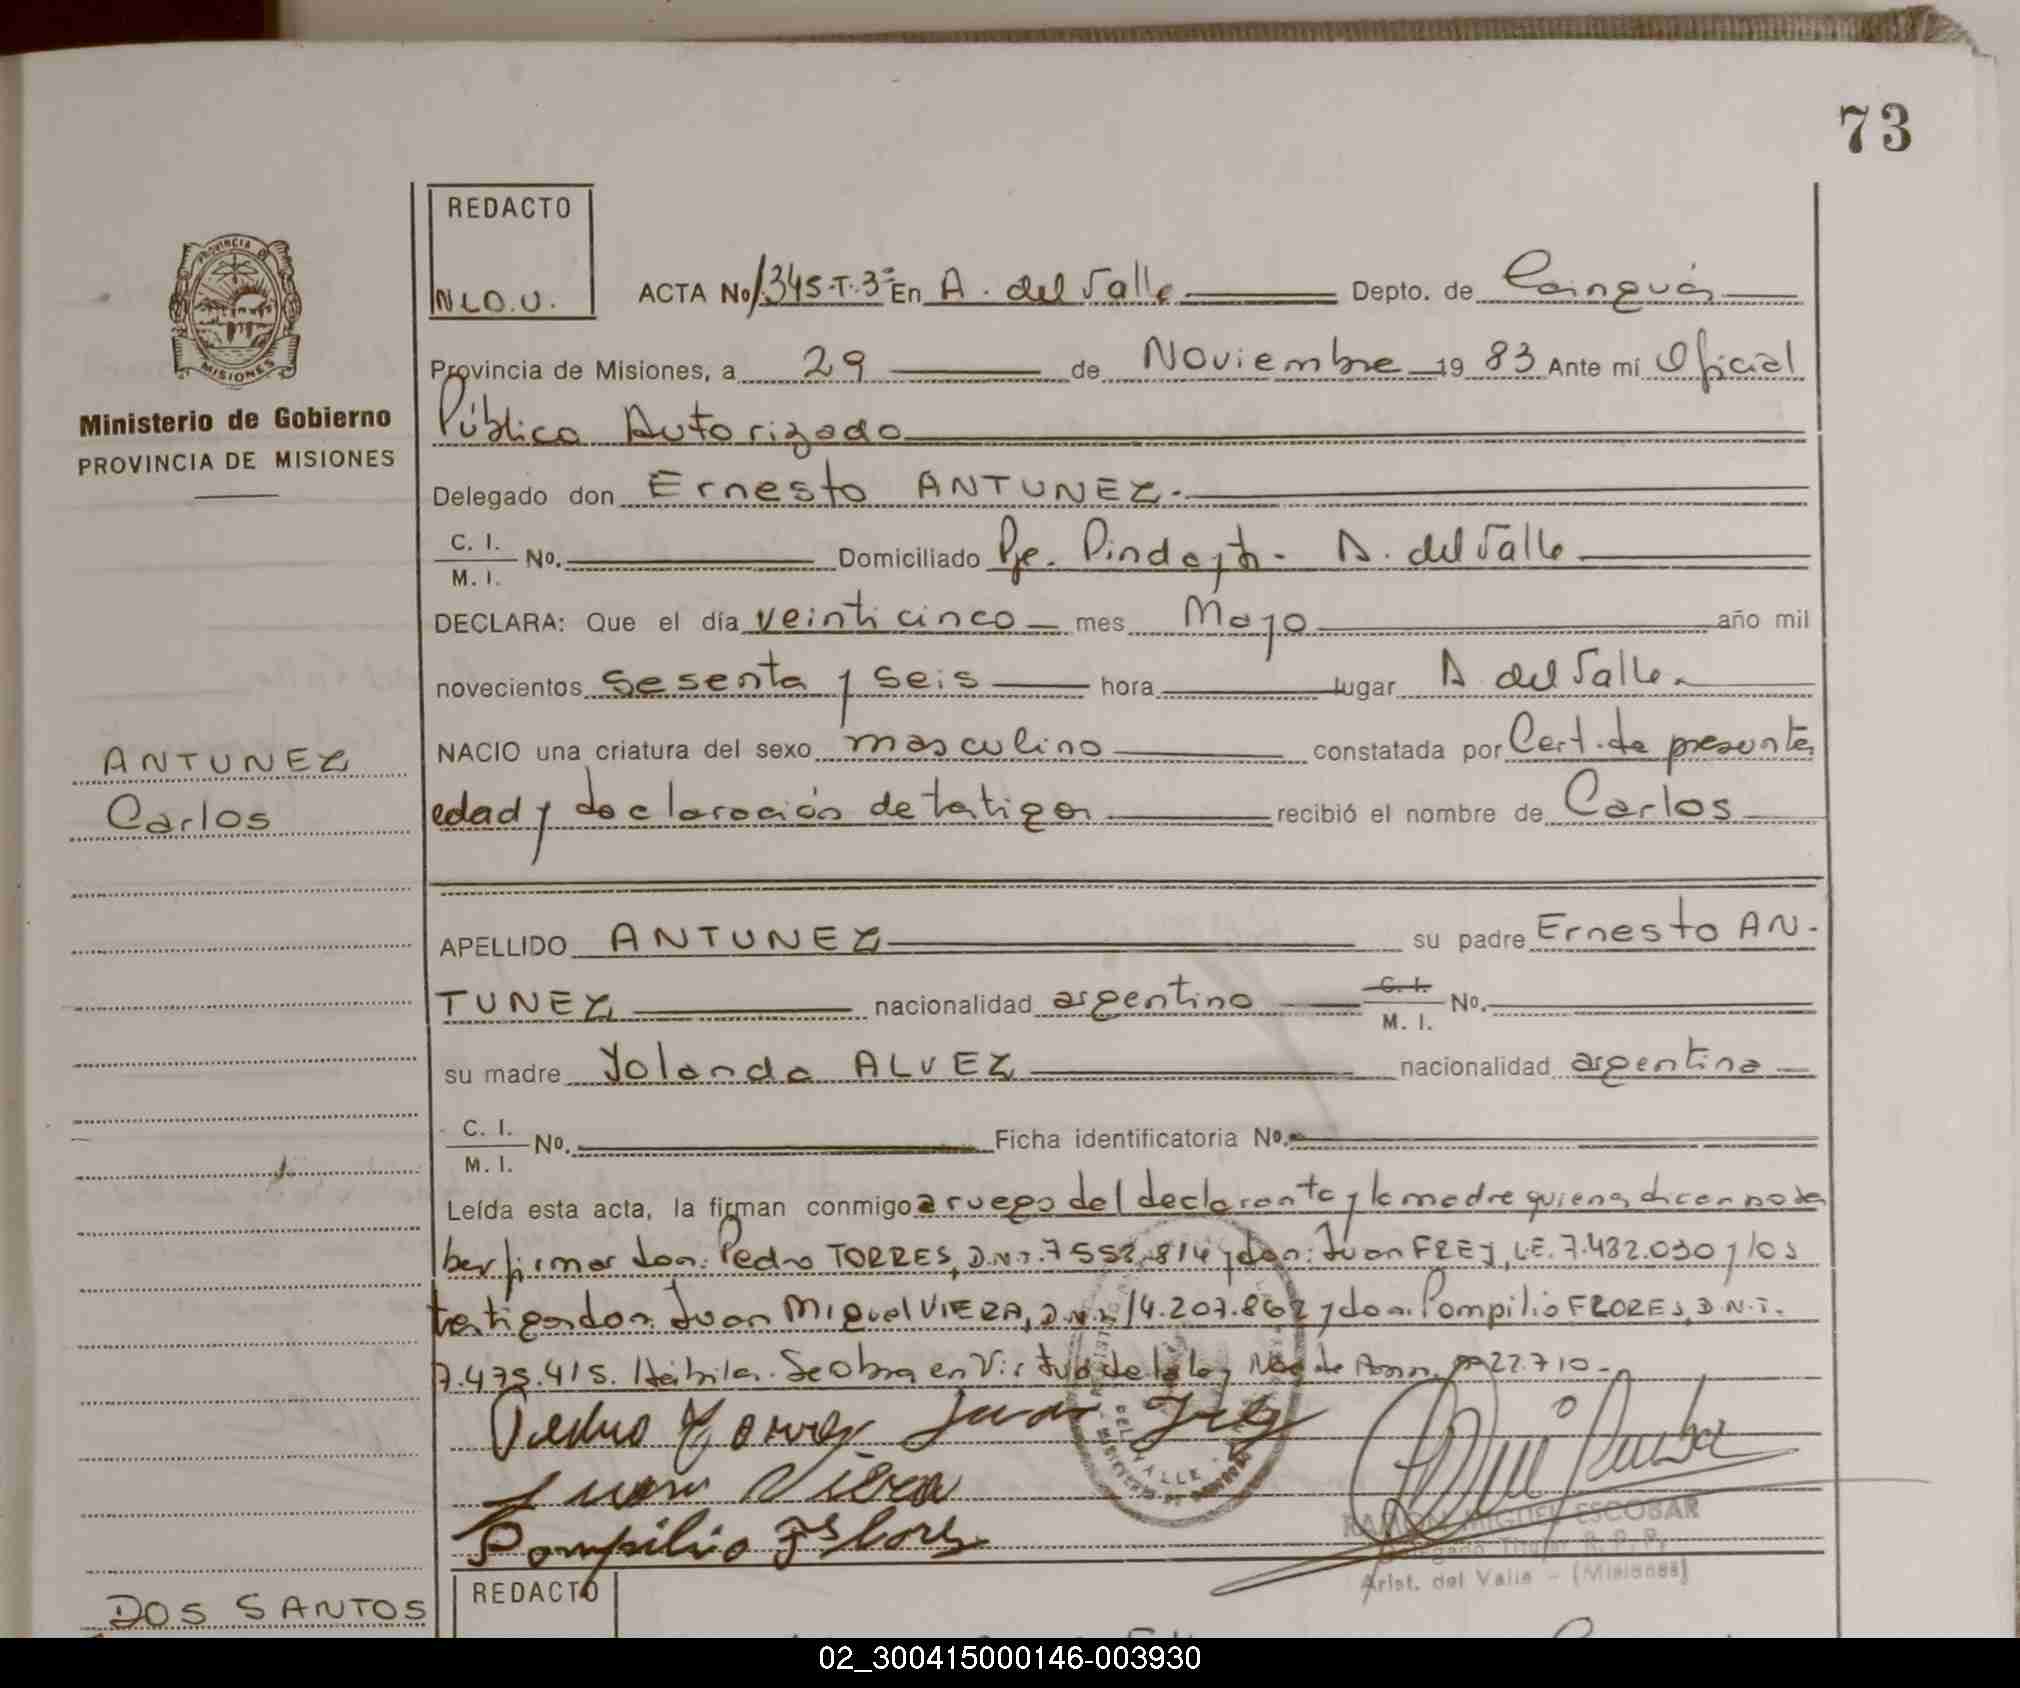 73
REDACTO
N.L.O.U.
PROVINCIA
MISIONES
Ministerio de Gobierno
PROVINCIA DE MISIONES
ACTA No 1345-T-3º En A. del Valle Depto. de Cainguás
Provincia de Misiones, a 29 de Noviembre 19 83 Ante mí Oficial
Público Autorizado
Delegado don Ernesto ANTUNEZ.
C. I. M. I. No. Domiciliado Pje. Pindayti - A. del Valle
DECLARA: Que el día veinticinco mes Mayo año mil
novecientos sesenta y seis hora lugar A. del Valle.
ANTUNEZ
Carlos
NACIO una criatura del sexo masculino constatada por Cert. de presunta
edad y declaración de testigos recibió el nombre de Carlos
APELLIDO ANTUNEZ su padre Ernesto AN-
TUNEZ nacionalidad argentino C. I. M. I. No.
su madre Yolanda ALVEZ nacionalidad argentina
C. I. M. I. No. Ficha identificatoria No.
Leída esta acta, la firman conmigo a ruego del declarante y la madre quienes dicen no sa
ber firmar don: Pedro TORRES, D.N.I. 7.552.814 y don: Juan FREY, L.E. 7.482.030 y los
testigos don: Juan Miguel VIERA, D.N.I. 14.207.862 y don: Pompilio FLORES, D.N.I.
7.475.415. Hábiles. Se obra en Virtud de la Ley Nac. de Amn. nº 22.710-
Pedro Torres Juan Frey
Juan Viera
Pompilio Flores
RAMON MIGUEL ESCOBAR
Delegado Titular R.P.P.
Arist. del Valle - (Misiones)
DOS SANTOS
REDACTO
02_300415000146-003930